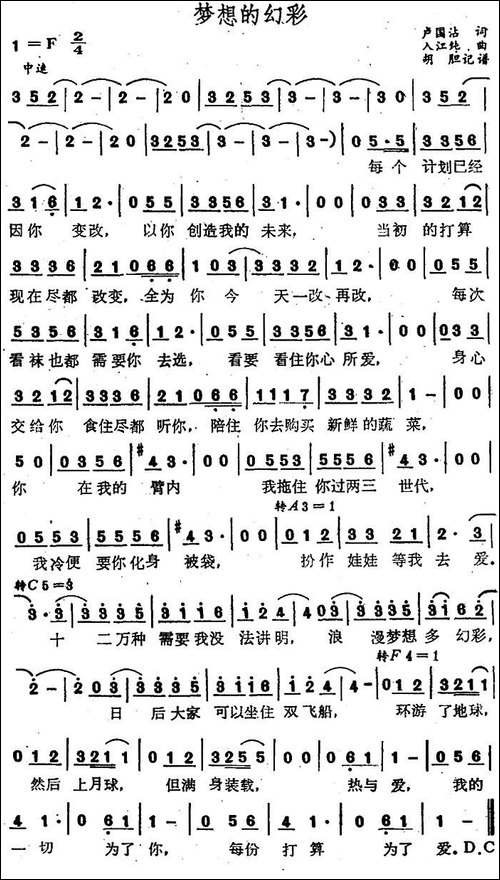 梦想的幻彩
1=F 2/4
卢国沾 词
入江纯 曲
胡 胆记谱
中速
3 5 2 | 2 - | 2 - | 2 0 | 3 2 5 3 | 3 - | 3 - | 3 0 | 3 5 2 |
2 - | 2 - | 2 0 | 3 2 5 3 | 3 - | 3 - | 3 -) | 0 5·5 | 3 3 5 6 |
每个 计划已经
3 1 6 | 1 2· | 0 5 5 | 3 3 5 6 | 3 1· | 0 0 | 0 3 3 | 3 2 1 2 |
因你 变改, 以你 创造我的 未来, 当初 的打算
3 3 3 6 | 2 1 0 6 6 | 1 0 3 | 3 3 3 2 | 1 2· | 0 0 | 0 5 5 |
现在尽都 改变,全为 你 今 天一改·再改, 每次
5 3 5 6 | 3 1 6 | 1 2· | 0 5 5 | 3 3 5 6 | 3 1· | 0 0 | 0 3 3 |
看袜也都 需要你 去选, 看要 看住你心 所爱, 身心
3 2 1 2 | 3 3 3 6 | 2 1 0 6 6 | 1 1 1 7 | 3 3 3 2 | 1 - | 0 0 |
交给你 食住尽都 听你,陪住 你去购买 新鲜的蔬 菜,
5 0 | 0 3 5 6 | #4 3· | 0 0 | 0 5 5 3 | 5 5 5 6 | #4 3· | 0 0 |
你 在我的 臂内 我拖住 你过两三 世代,
转A3=1
0 5 5 3 | 5 5 5 6 | #4 3· | 0 0 | 0 1 2 | 3 3 2 1 | 2 · 3 |
我冷便 要你化身 被袋, 扮作 娃娃 等我去 爱.
转C5=3
3·3 | 3 3 3 5 | 3 1 1 6 | 1 2 4 | 4 0 3 | 3 3 3 5 | 3 1 6 2 |
十 二万种 需要我没 法讲明, 浪 漫梦想 多 幻彩,
转F4=1
2 - | 2 0 3 | 3 3 3 5 | 3 1 1 6 | 1 2 4 | 4 - | 0 1 2 | 3 2 1 1 |
日 后大家 可以坐住 双飞船, 环游 了地球,
0 1 2 | 3 2 1 1 | 0 1 2 | 3 2 5 5 | 0 0 | 0 6 1 | 1 - | 0 5 6 |
然后 上月球, 但满 身装载, 热与 爱, 我的
4 1· | 0 6 1 | 1 - | 0 5 6 | 4 1· | 0 6 1 | 1 - ||
一切 为了 你, 每份 打算 为了 爱.D.C